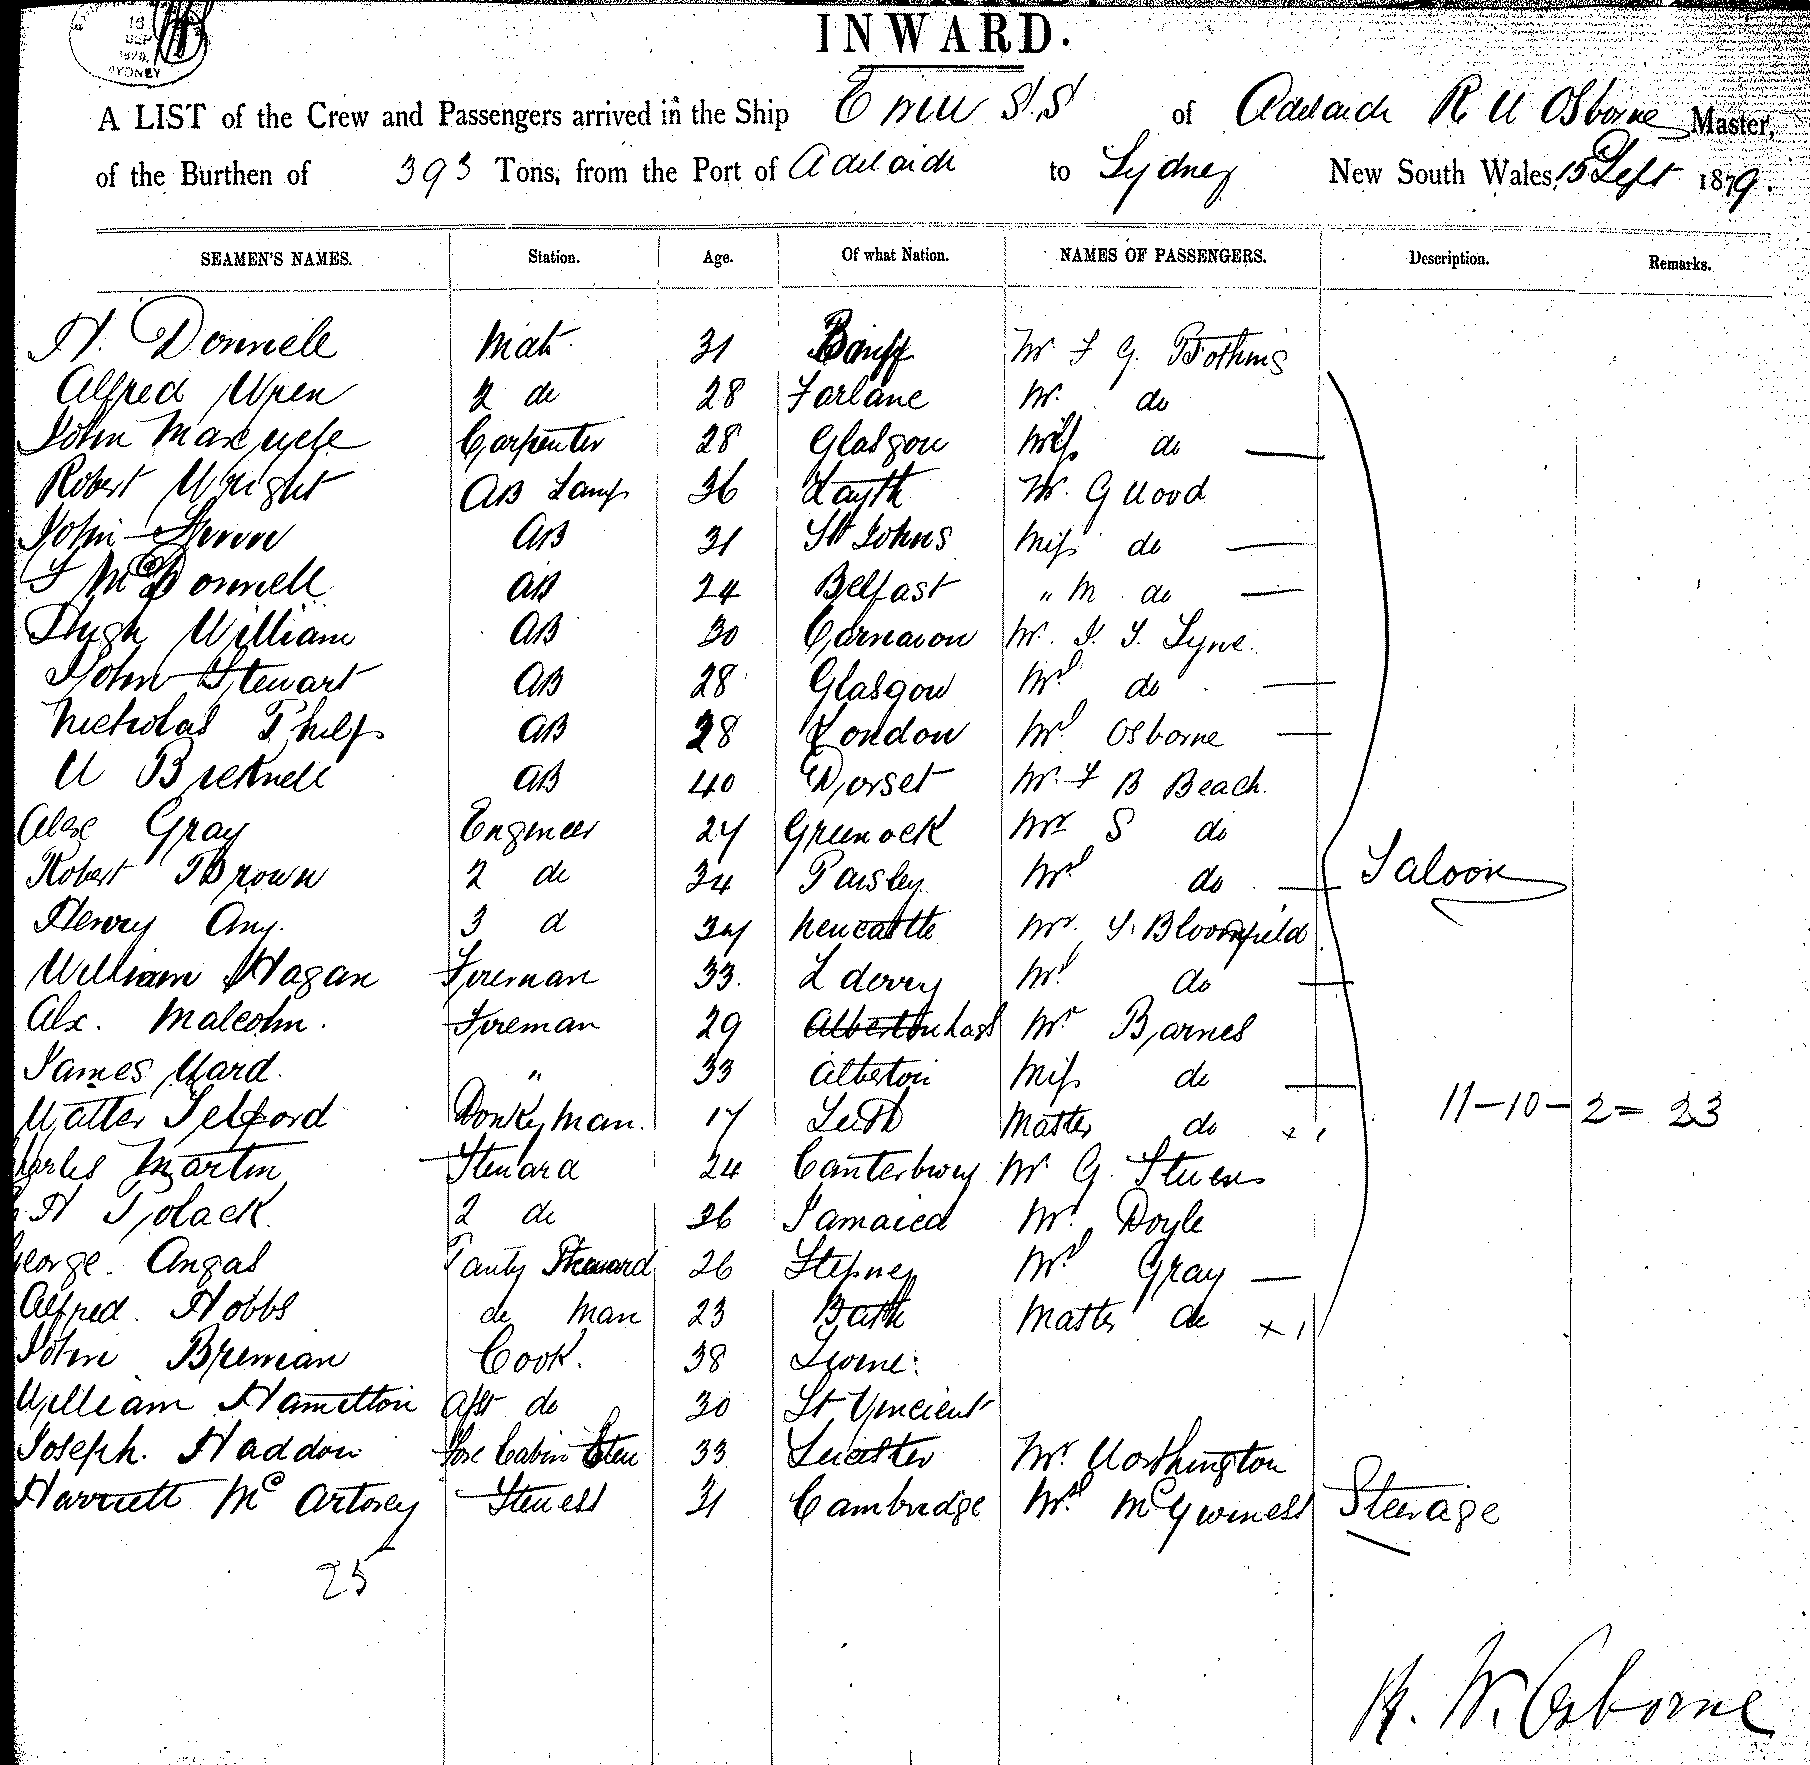 SYDNEY
INWARD.
A LIST of the Crew and Passengers arrived in the Ship Emu S.S of Adelaide R W Osborne Master,
of the Burthen of 393 Tons, from the Port of Adelaide to Sydney New South Wales, 15 Sept 1879.
SEAMEN'S NAMES. Station. Age. Of what Nation. NAMES OF PASSENGERS. Description. Remarks.
H. Donnell Mate 31 Banff Mr F G.
Alfred Wren 2 do 28 Farlane Mr. do
John Maxwell Carpenter 28 Glasgow Mrs do —
Robert Wright AB Lamps 36 Mr. G Wood
John AB 31 St Johns Miss do —
F McDonnell AB 24 Belfast " M do —
Hugh William AB 30 Carnavon Mr. J. T. Lyne.
John Stewart AB 28 Glasgow Mrs do —
Nicholas Philps AB 28 London Mrs Osborne —
W Bicknell AB 40 Dorset Mr. F B Beach.
Alex Gray Engineer 27 Greenock Mr S do
Robert Brown 2 do 34 Paisley Mrs do — Saloon
Henry 3 d 37 Newcastle Mr. Bloomfield
William Hagan Fireman 33. L derry Mrs do —
Alx. Malcolm. Fireman 29 Mr Barnes
James Ward. " 33 Alberton Miss do —
Walter Telford Donkeyman. 17 Leith Master do x 1 11-10-2= 23
Charles Martin Steward 24 Canterbury Mr G. Stevens
H Polack. 2 do 36 Jamaica Mr. Doyle
George. Angas Panty Steward 26 Stepney Mrs Gray —
Alfred. Hobbs do man 23 Bath Master do x 1
John Brennan Cook. 38
William Hamilton Asst do 30 St Vincient
Joseph. Haddon Fore Cabin Stew 33 Leicester Mr Worthington
Harriett McArtney Stewess 31 Cambridge Mrs McGwiness Steerage
25
R. W. Osborne